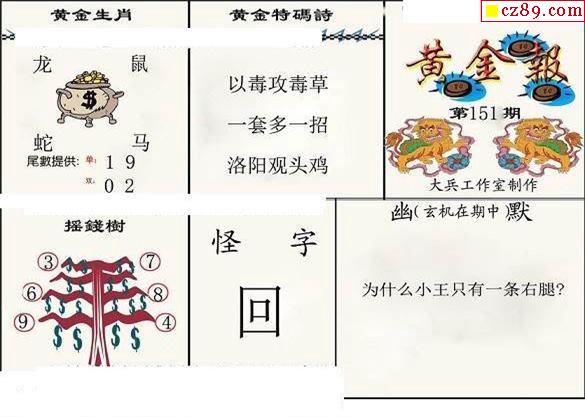 cz89.com
黄金生肖
龙 鼠
$
蛇 马
尾數提供: 单: 1 9
双: 0 2
黄金特碼詩
以毒攻毒草
一套多一招
洛阳观头鸡
黄金報
第151期
大兵工作室制作
摇錢樹
3 7
6 8
9 4
怪字
回
幽(玄机在期中)默
为什么小王只有一条右腿?